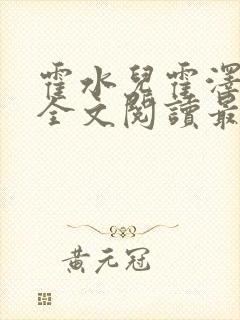 霍水兒霍澤
全文閱讀最
黃元冠